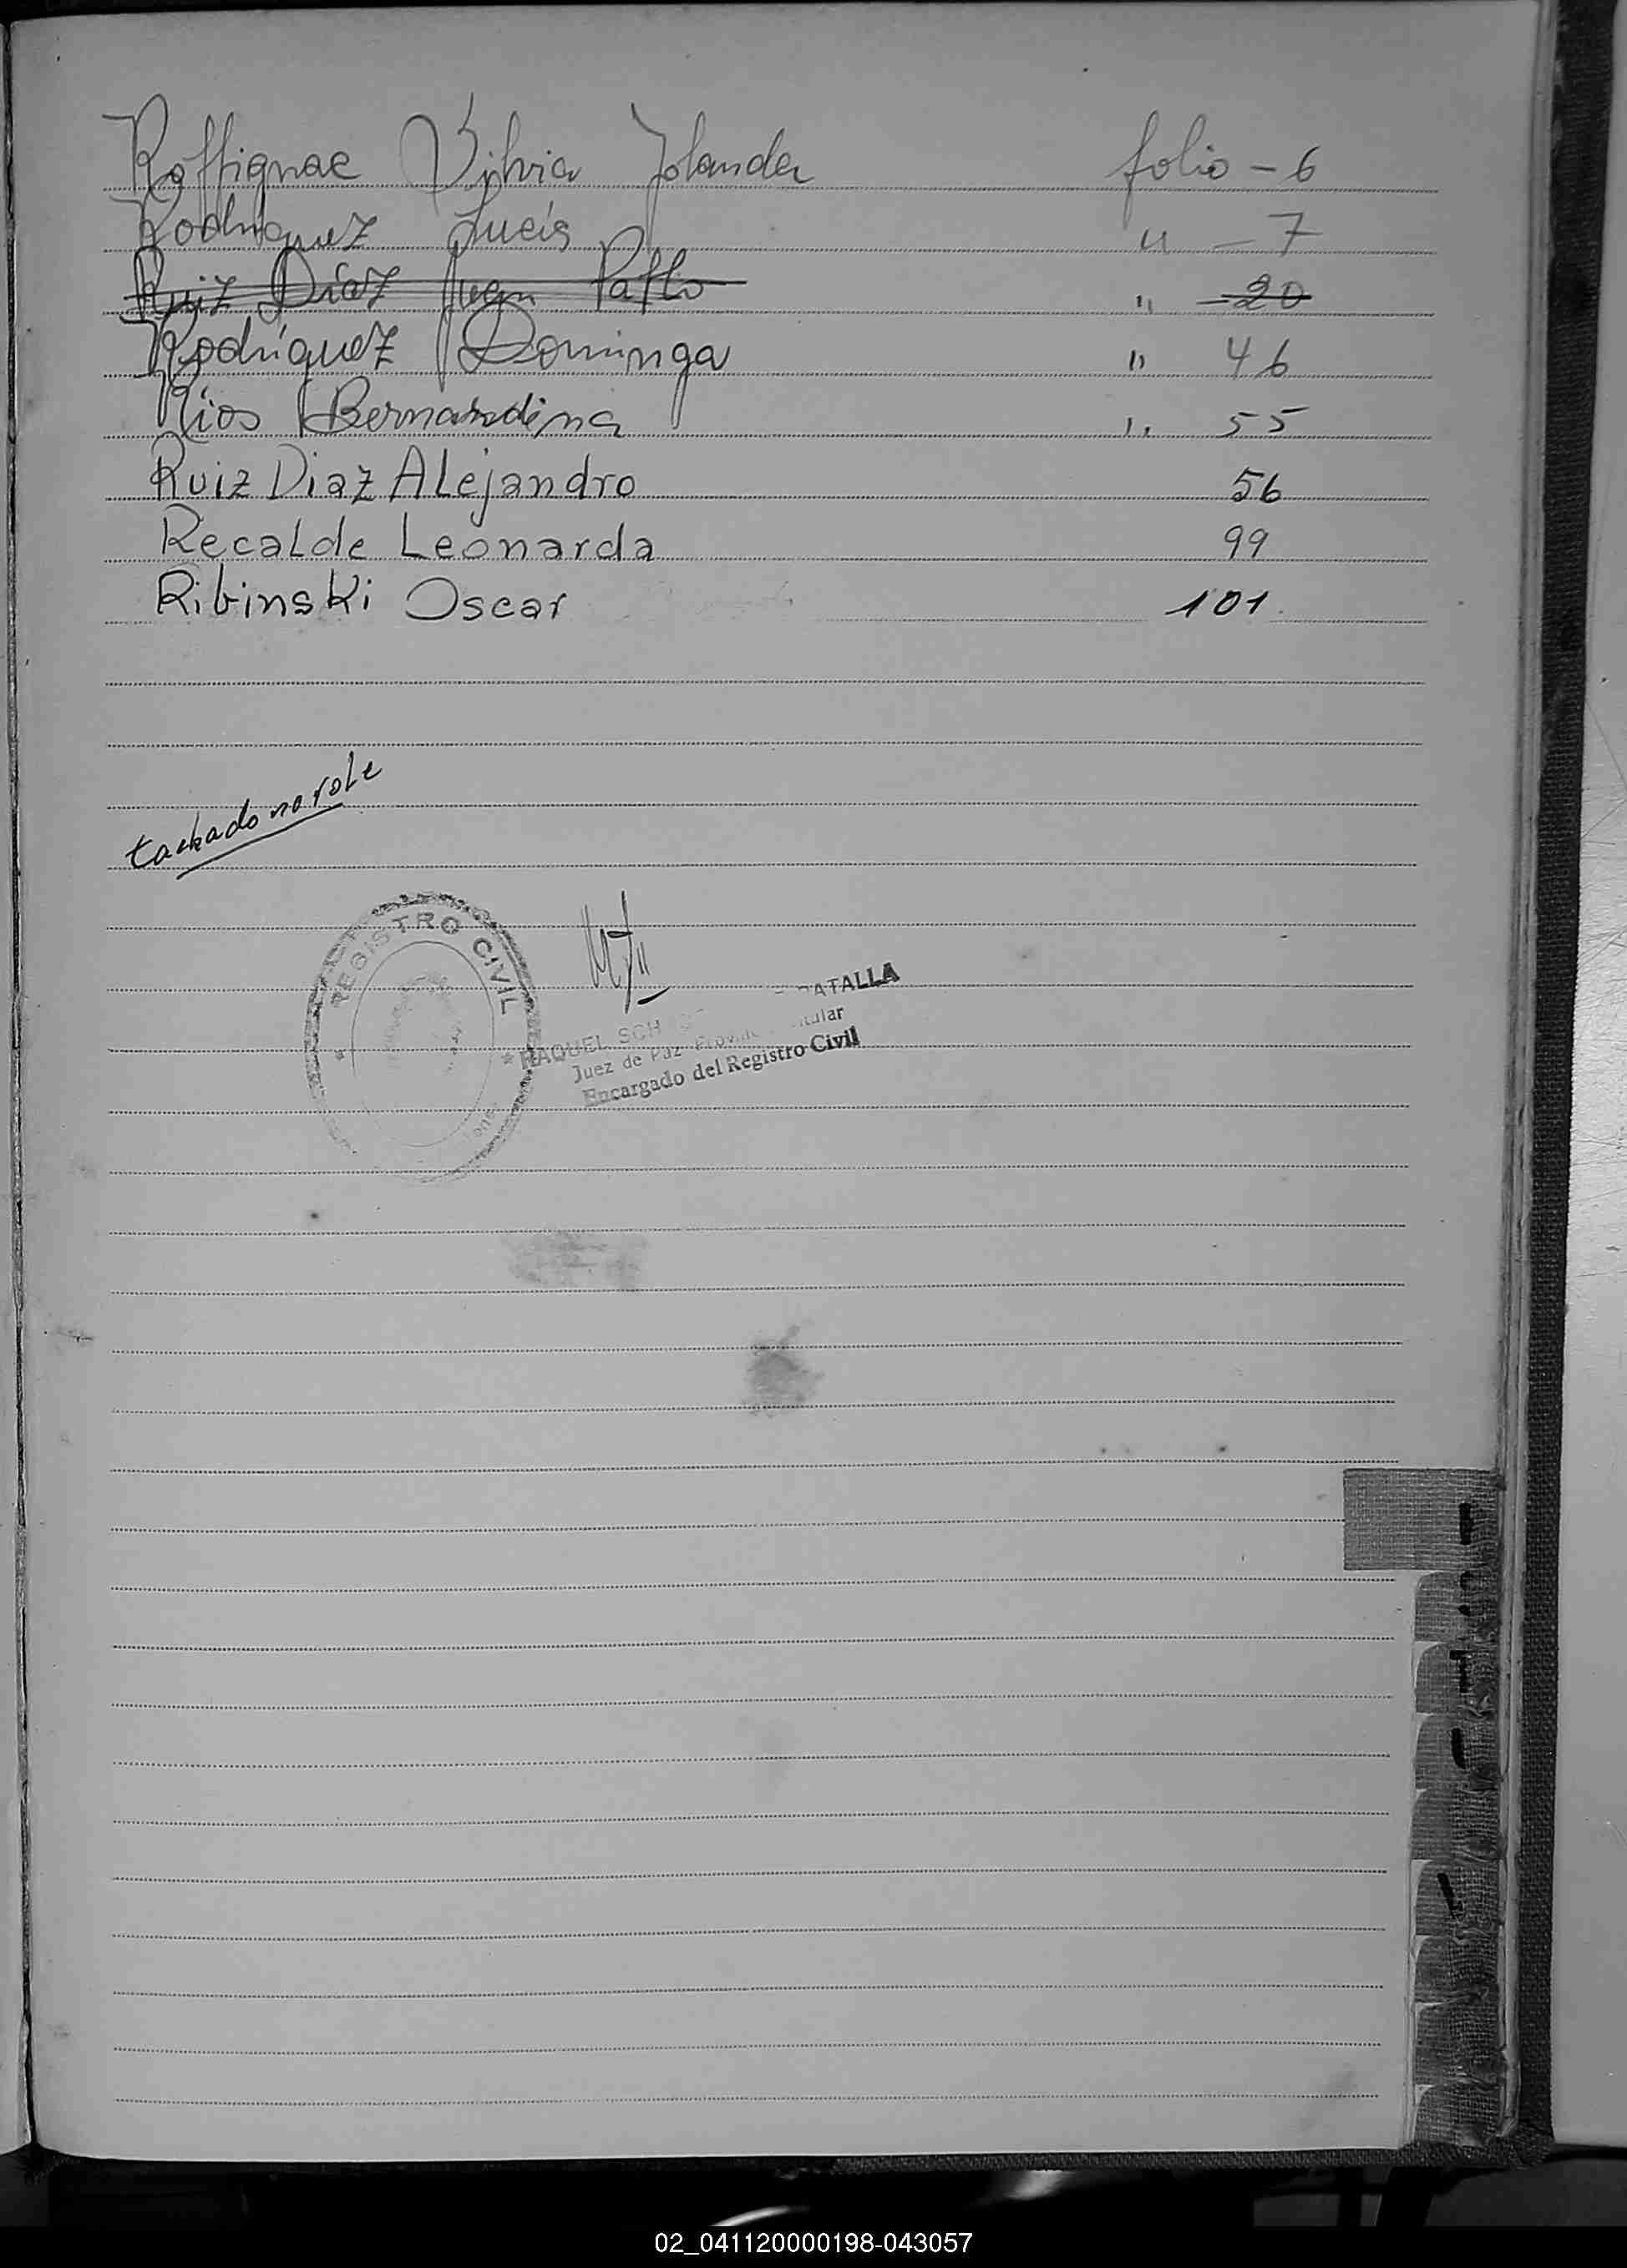 Roffignac Silvia Jolanda folio - 6
Rodriguez Lucía " - 7
Ruiz Díaz Juan Pablo " - 20
Rodríguez Dominga " 46
Ríos Bernardina " 55
Ruiz Diaz Alejandro 56
Recalde Leonarda 99
Ribinski Oscar 101
tachado no vale
REGISTRO CIVIL
RAQUEL SCH BATALLA
Juez de Paz Titular
Encargado del Registro Civil
02_041120000198-043057